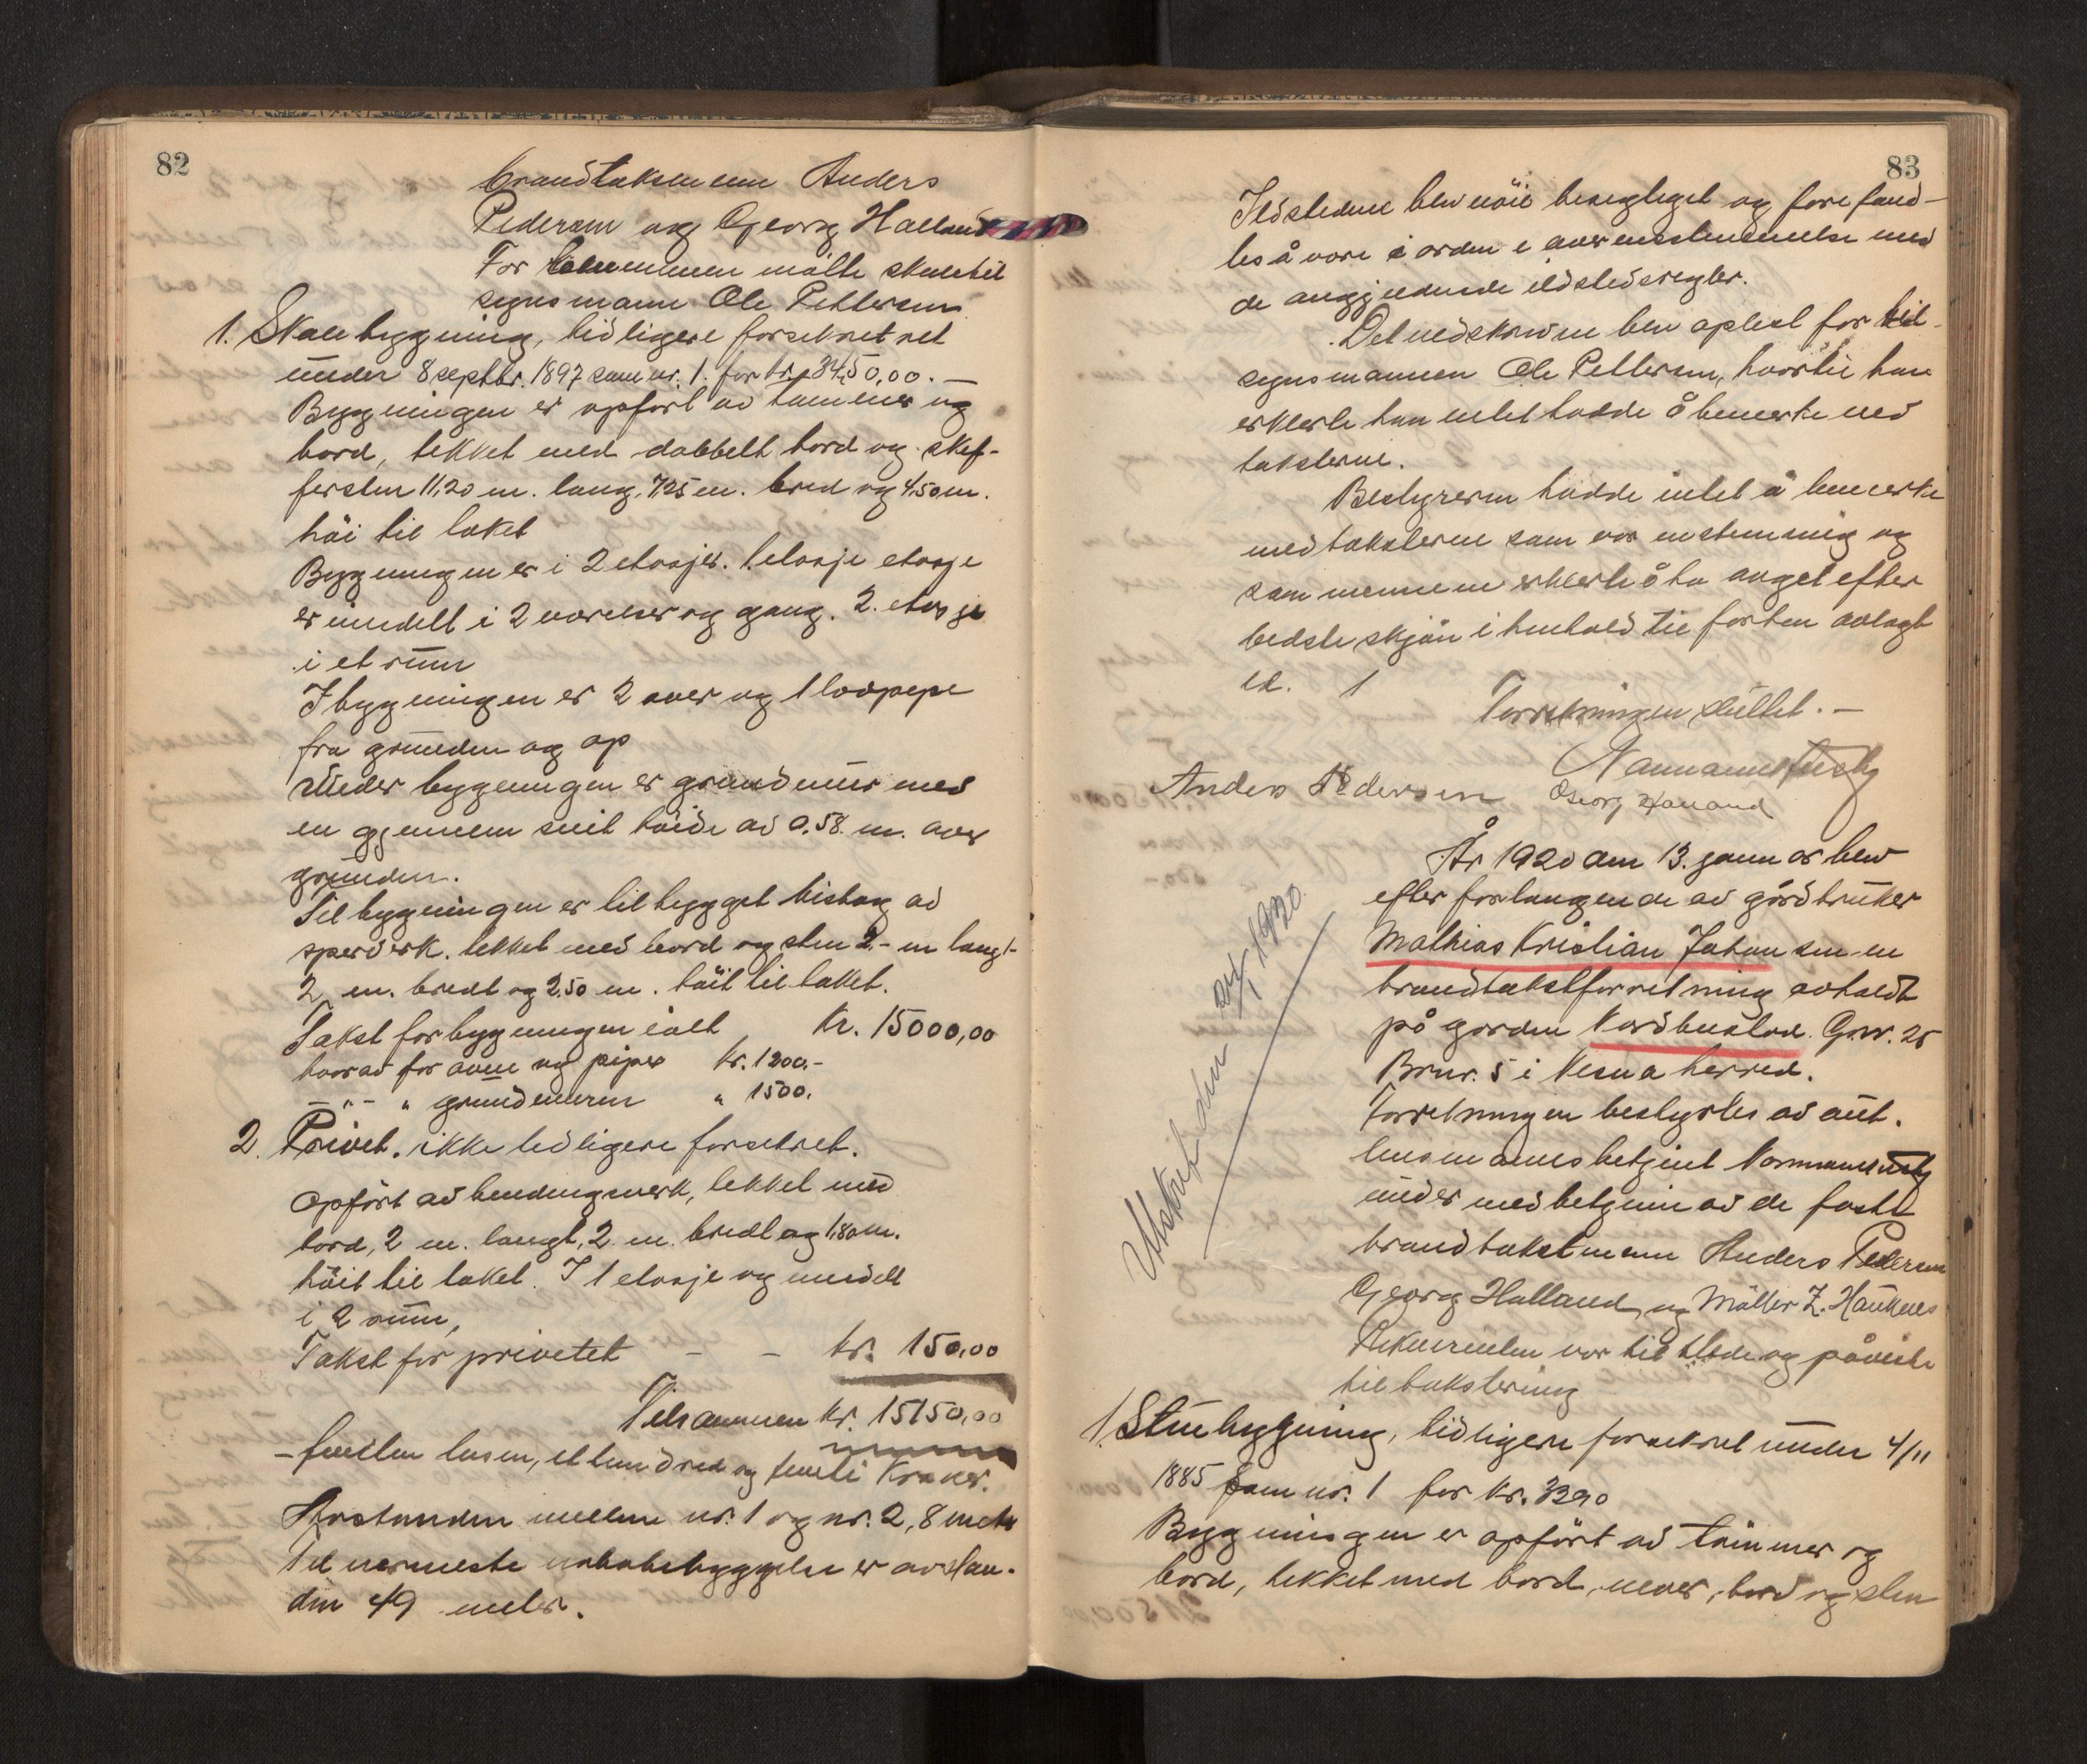 82
brandtaksmenn Anders
Pedersen og Georg Halland
For kommunen mötte skoletil
synsmann Ole Pettersen
1. Skolebygning, tidligere forsikret
under 8 septbr. 1897 som nr. 1. for kr. 3450,00.—
Bygningen er opfört av tömmer og
bord, tekket med dobbelt bord og skif-
fersten 11,20 m. lang, 7,25 m. bred og 4,50 m.
höi til taket
Bygningen er i 2 etasjer. 1 etasje etasje
er inndelt i 2 værelser og gang. 2. etasje
i et rum
I bygningen er 2 over og 1 lodpipe
fra grunden og op
Under bygningen er grundmur med
en gjennemsnit höide av 0,58 m. over
grunden.
Til bygningen er tilbygget bislag av
sperverk. tekket med bord og sten 2,- m langt-
2 m. bredt og 2,50 m. höit til taket.
Takst for bygningen ialt kr. 15000,00
hvorav for ovne og piper kr. 1200.-
-"- " grundmuren " 1500.
2. Privet. ikke tidligere forsikret.
Opfört av bendingsverk, tekket med
bord, 2 m. langt, 2 m. bredt og 1,80 m.
höit til taket. I 1 etasje og inndelt
i 2 rum,
Takst for privetet - - kr. 150,00
Tilsammen kr. 15150,00
-femten tusen, et hundred og femti Kroner.
Avstanden mellem nr. 1 og nr. 2, 8 meter
Til nermeste nabobebyggelse er avstan-
den 49 meter.
83
Ildstedene blev nöie besigtiget og forefand-
tes å være i orden i overensstemmelse med
de angjeldende ildstedsregler.
Det nedskrevne blev oplest for til-
synsmannen Ole Pettersen, hvortil han
erklerte han intet hadde å bemerke med
taksterne.
Bestyreren hadde intet å bemerke
med taksterne som var enstemmig og
som mennene erklerte å ha avget efter
bedste skjön i henhold til forhen avlagt
ed.
Forretningen sluttet.—
Anders Pedersen
Georg Halland
År 1920 den 13. januar blev
efter forlangende av gårdbruker
Mathias Kristian Johansen en
brandtakstforretning avholdt
på gården Nordbustad. Gnr. 25
Brnr. 5 i Nesna herred.
Forretningen bestyrtes av aut.
lensmannsbetjent
under medbetjening av de faste
brandtakstmenn Anders Pedersen
Georg Halland og Möller Z. Hauknes
Rekvirenten var tilstede og påviste
til taksering
Utskrift den 24/1 1920
1. Stuebygning, tidligere forsikret under 4/11
1885 som nr. 1 for kr. 3290
Bygningen er opfört av tömmer og
bord, tekket med bord, never, bord og sten